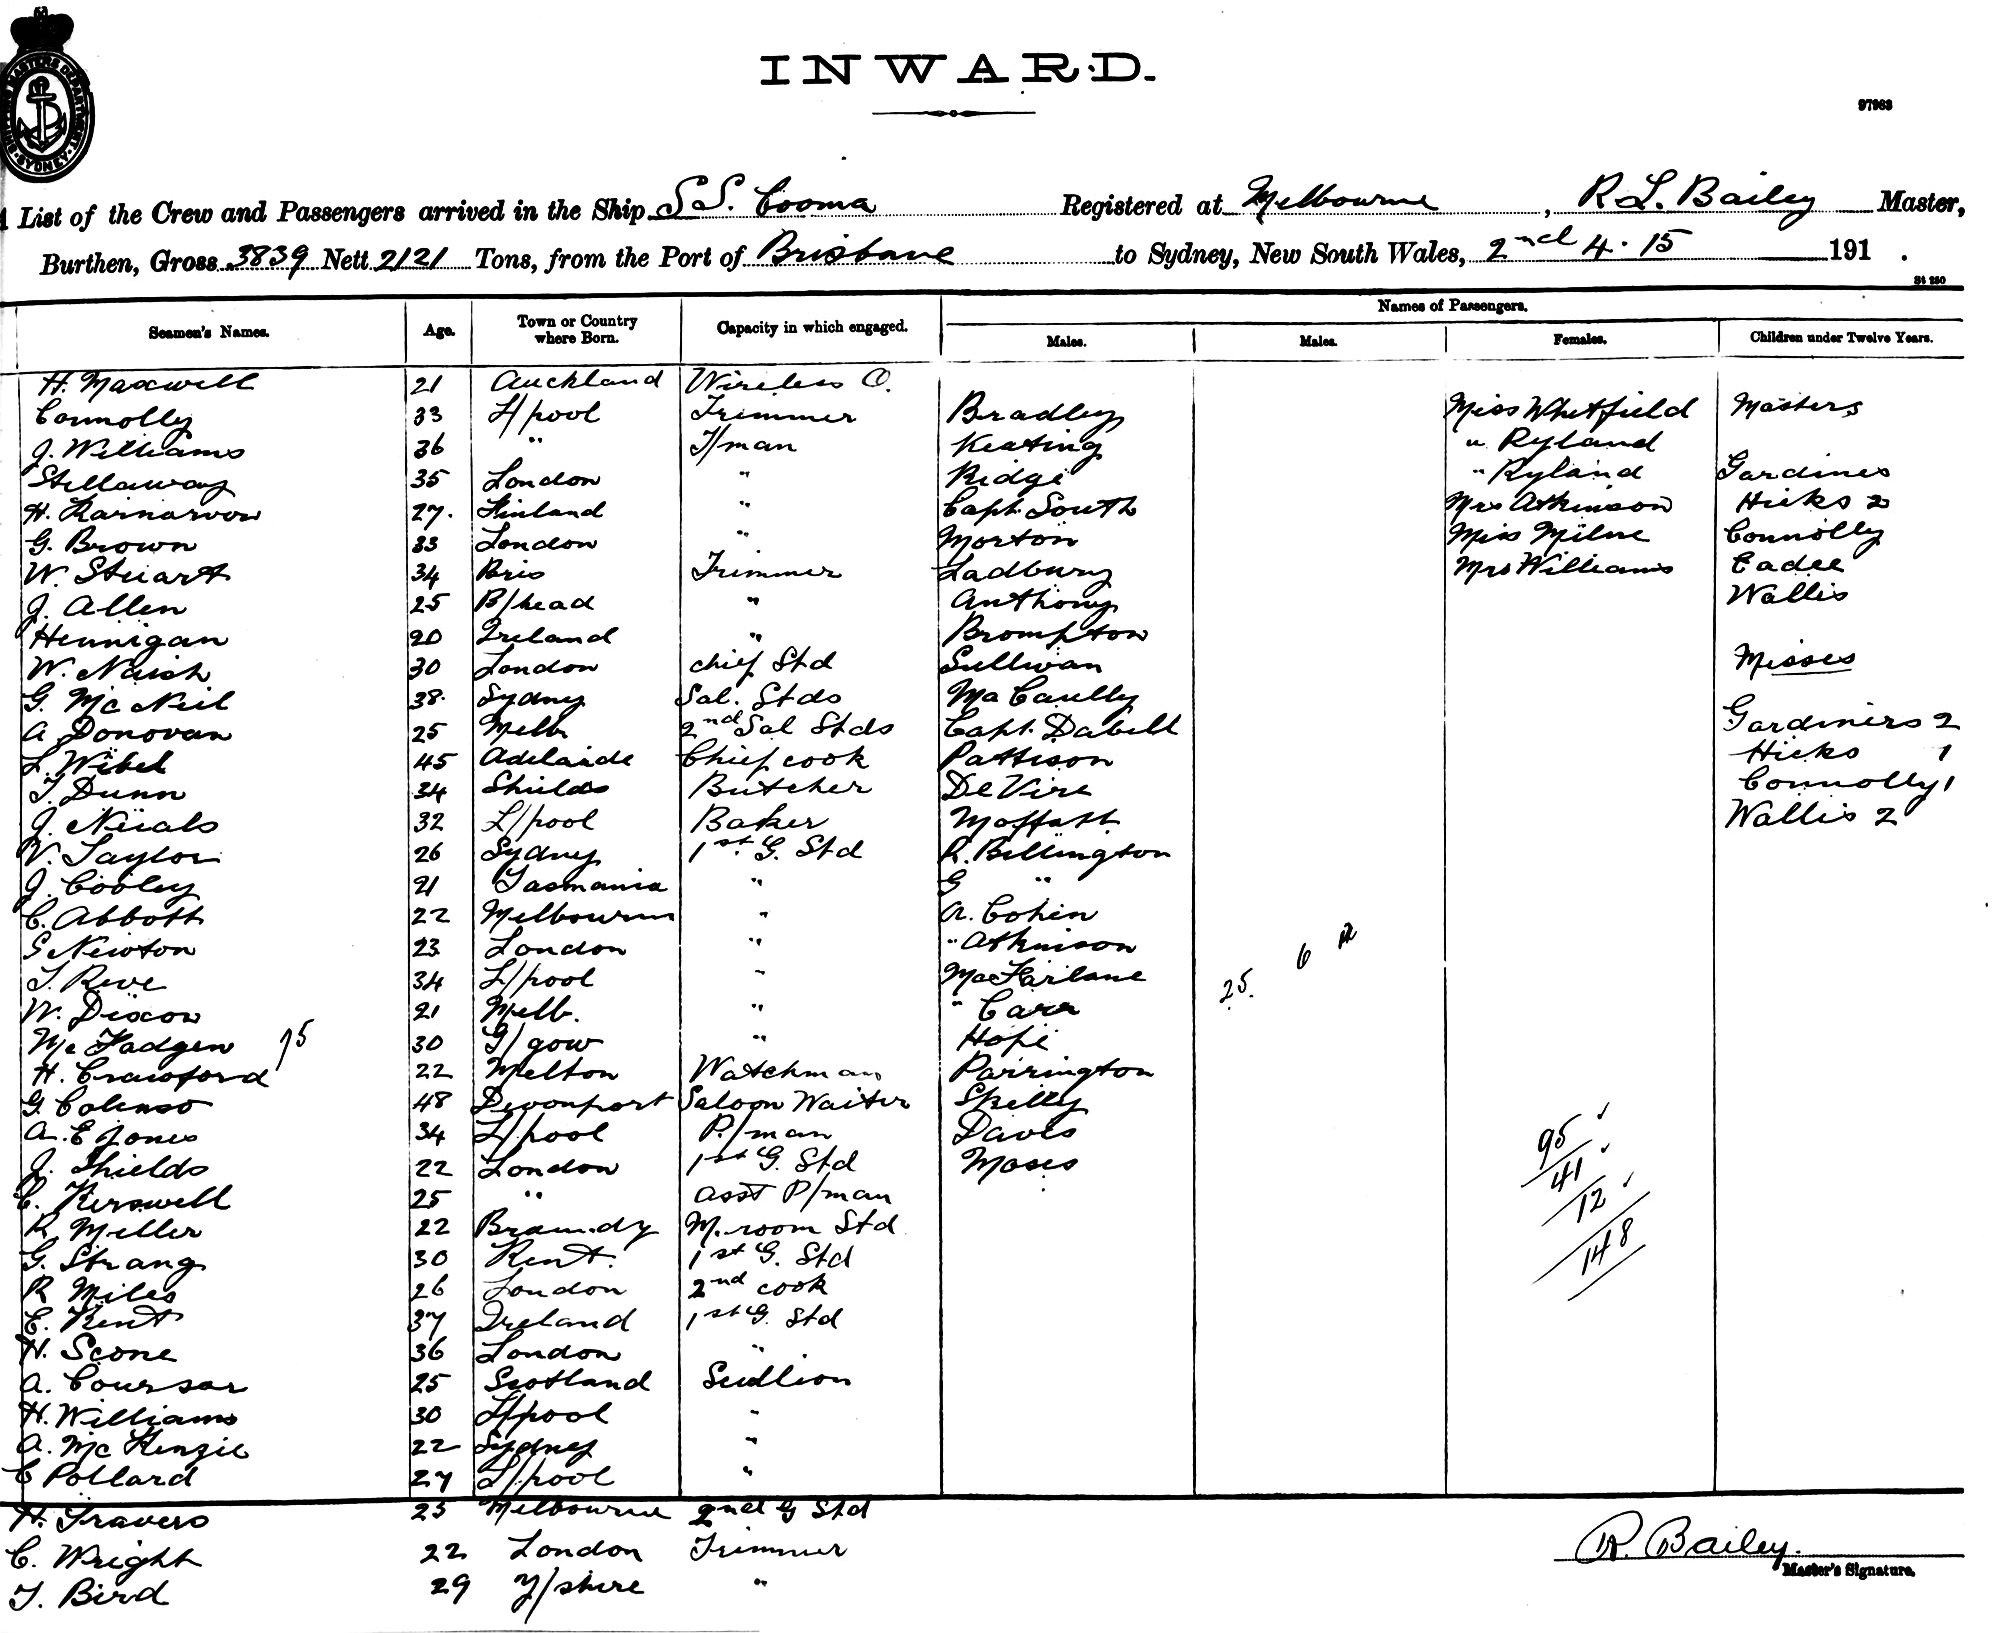 SHIPPING MASTERS DEPARTMENT · SYDNEY ·
INWARD.
97983
A List of the Crew and Passengers arrived in the Ship S.S. Cooma Registered at Melbourne, R L. Bailey Master,
Burthen, Gross 3839 Nett 2121 Tons, from the Port of Brisbane to Sydney, New South Wales, 2nd 4. 15 191 .
St 280
Names of Passengers.
Seamen's Names. Age. Town or Country where Born. Capacity in which engaged. Males. Males. Females. Children under Twelve Years.
H. Maxwell 21 Auckland Wireless O.
Connolly 33 L/pool Trimmer Bradley Miss Whitfield Masters
J. Williams 36 " F/man Keating " Ryland
Stellaway 35 London " Ridge " Ryland Gardines
H. Karnarvow 27. Finland " Capt. South Mrs Atkinson Hicks 2
G. Brown 33 London " Morton Miss Milne Connolly
W. Stuart 34 Bris Trimmer Ladbury Mrs Williams Eadee
J. Allen 25 B/head " Anthony Wallis
Hennigan 20 Ireland " Brompton
W. Naish 30 London chief Std Sullivan Misses
G. McNeil 38. Sydney Sal. Stds MaCaully
A Donovan 25 Melb 2nd Sal Stds Capt. Dabell Gardiners 2
L. Wibel 45 Adelaide Chief cook Pattison Hicks 1
T. Dunn 34 Shields Butcher DeVire Connolly 1
J. Nicals 32 L/pool Baker Moffatt Wallis 2
W. Taylor 26 Sydney 1st. G. Std R. Billington
J. Cooley 21 Tasmania " G "
C. Abbott 22 Melbourne " A. Cohen
S Newton 23 London " " Atkinson
T. Reve 34 L/pool " MacFarlane
W. Dixon 21 Melb. " " Carr 25. 6
McFadgen 75 30 G/gow " Hope
H. Crawford 22 Melton Watchman Parrington
G. Colenso 48 Devonport Saloon Waiter Skelly
A. E Jones 34 L/pool P./man Davis 95
J. Shields 22 London 1st G. Std Moses 41
C. Kerswell 25 " Asst P/man 12
R Miller 22 M. room Std 148
G. Strang 30 Kent. 1st G. Std
R Miles 26 London 2nd cook
E. Kent 37 Ireland 1st G. Std
H. Scone 36 London "
A. Coursar 25 Scotland Scullion
H. Williams 30 L/pool "
A. McKenzie 22 Sydney "
C Pollard 27 L/pool "
H. Travers 23 Melbourne 2nd G Std
C. Wright 22 London Trimmer
T. Bird 29 Y/shire "
R. Bailey.
Master's Signature.